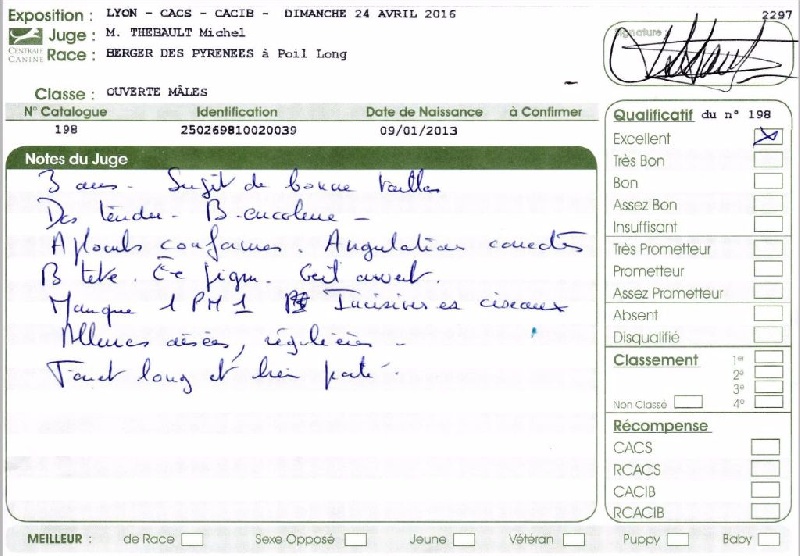 Exposition : LYON - CACS - CACIB - DIMANCHE 24 AVRIL 2016
2297
CENTRALE CANINE
Juge : M. THEBAULT Michel
Race : BERGER DES PYRENEES à Poil Long
Signature :
Classe : OUVERTE MÂLES
N° Catalogue Identification Date de Naissance à Confirmer
198 250269810020039 09/01/2013
Notes du Juge
3 ans. Sujet de bonne taille
Dos tendu - B. encolure -
Aplombs conformes. Angulation correctes
B tete. Oeil ouvert
Manque 1 PM1 Incisives en ciseaux
Allures aisées, régulières -
Fouet long et bien porté.
Qualificatif du n° 198
Excellent
Très Bon
Bon
Assez Bon
Insuffisant
Très Prometteur
Prometteur
Assez Prometteur
Absent
Disqualifié
Classement 1e
2e
3e
Non Classé 4e
Récompense
CACS
RCACS
CACIB
RCACIB
MEILLEUR : de Race Sexe Opposé Jeune Vétéran Puppy Baby